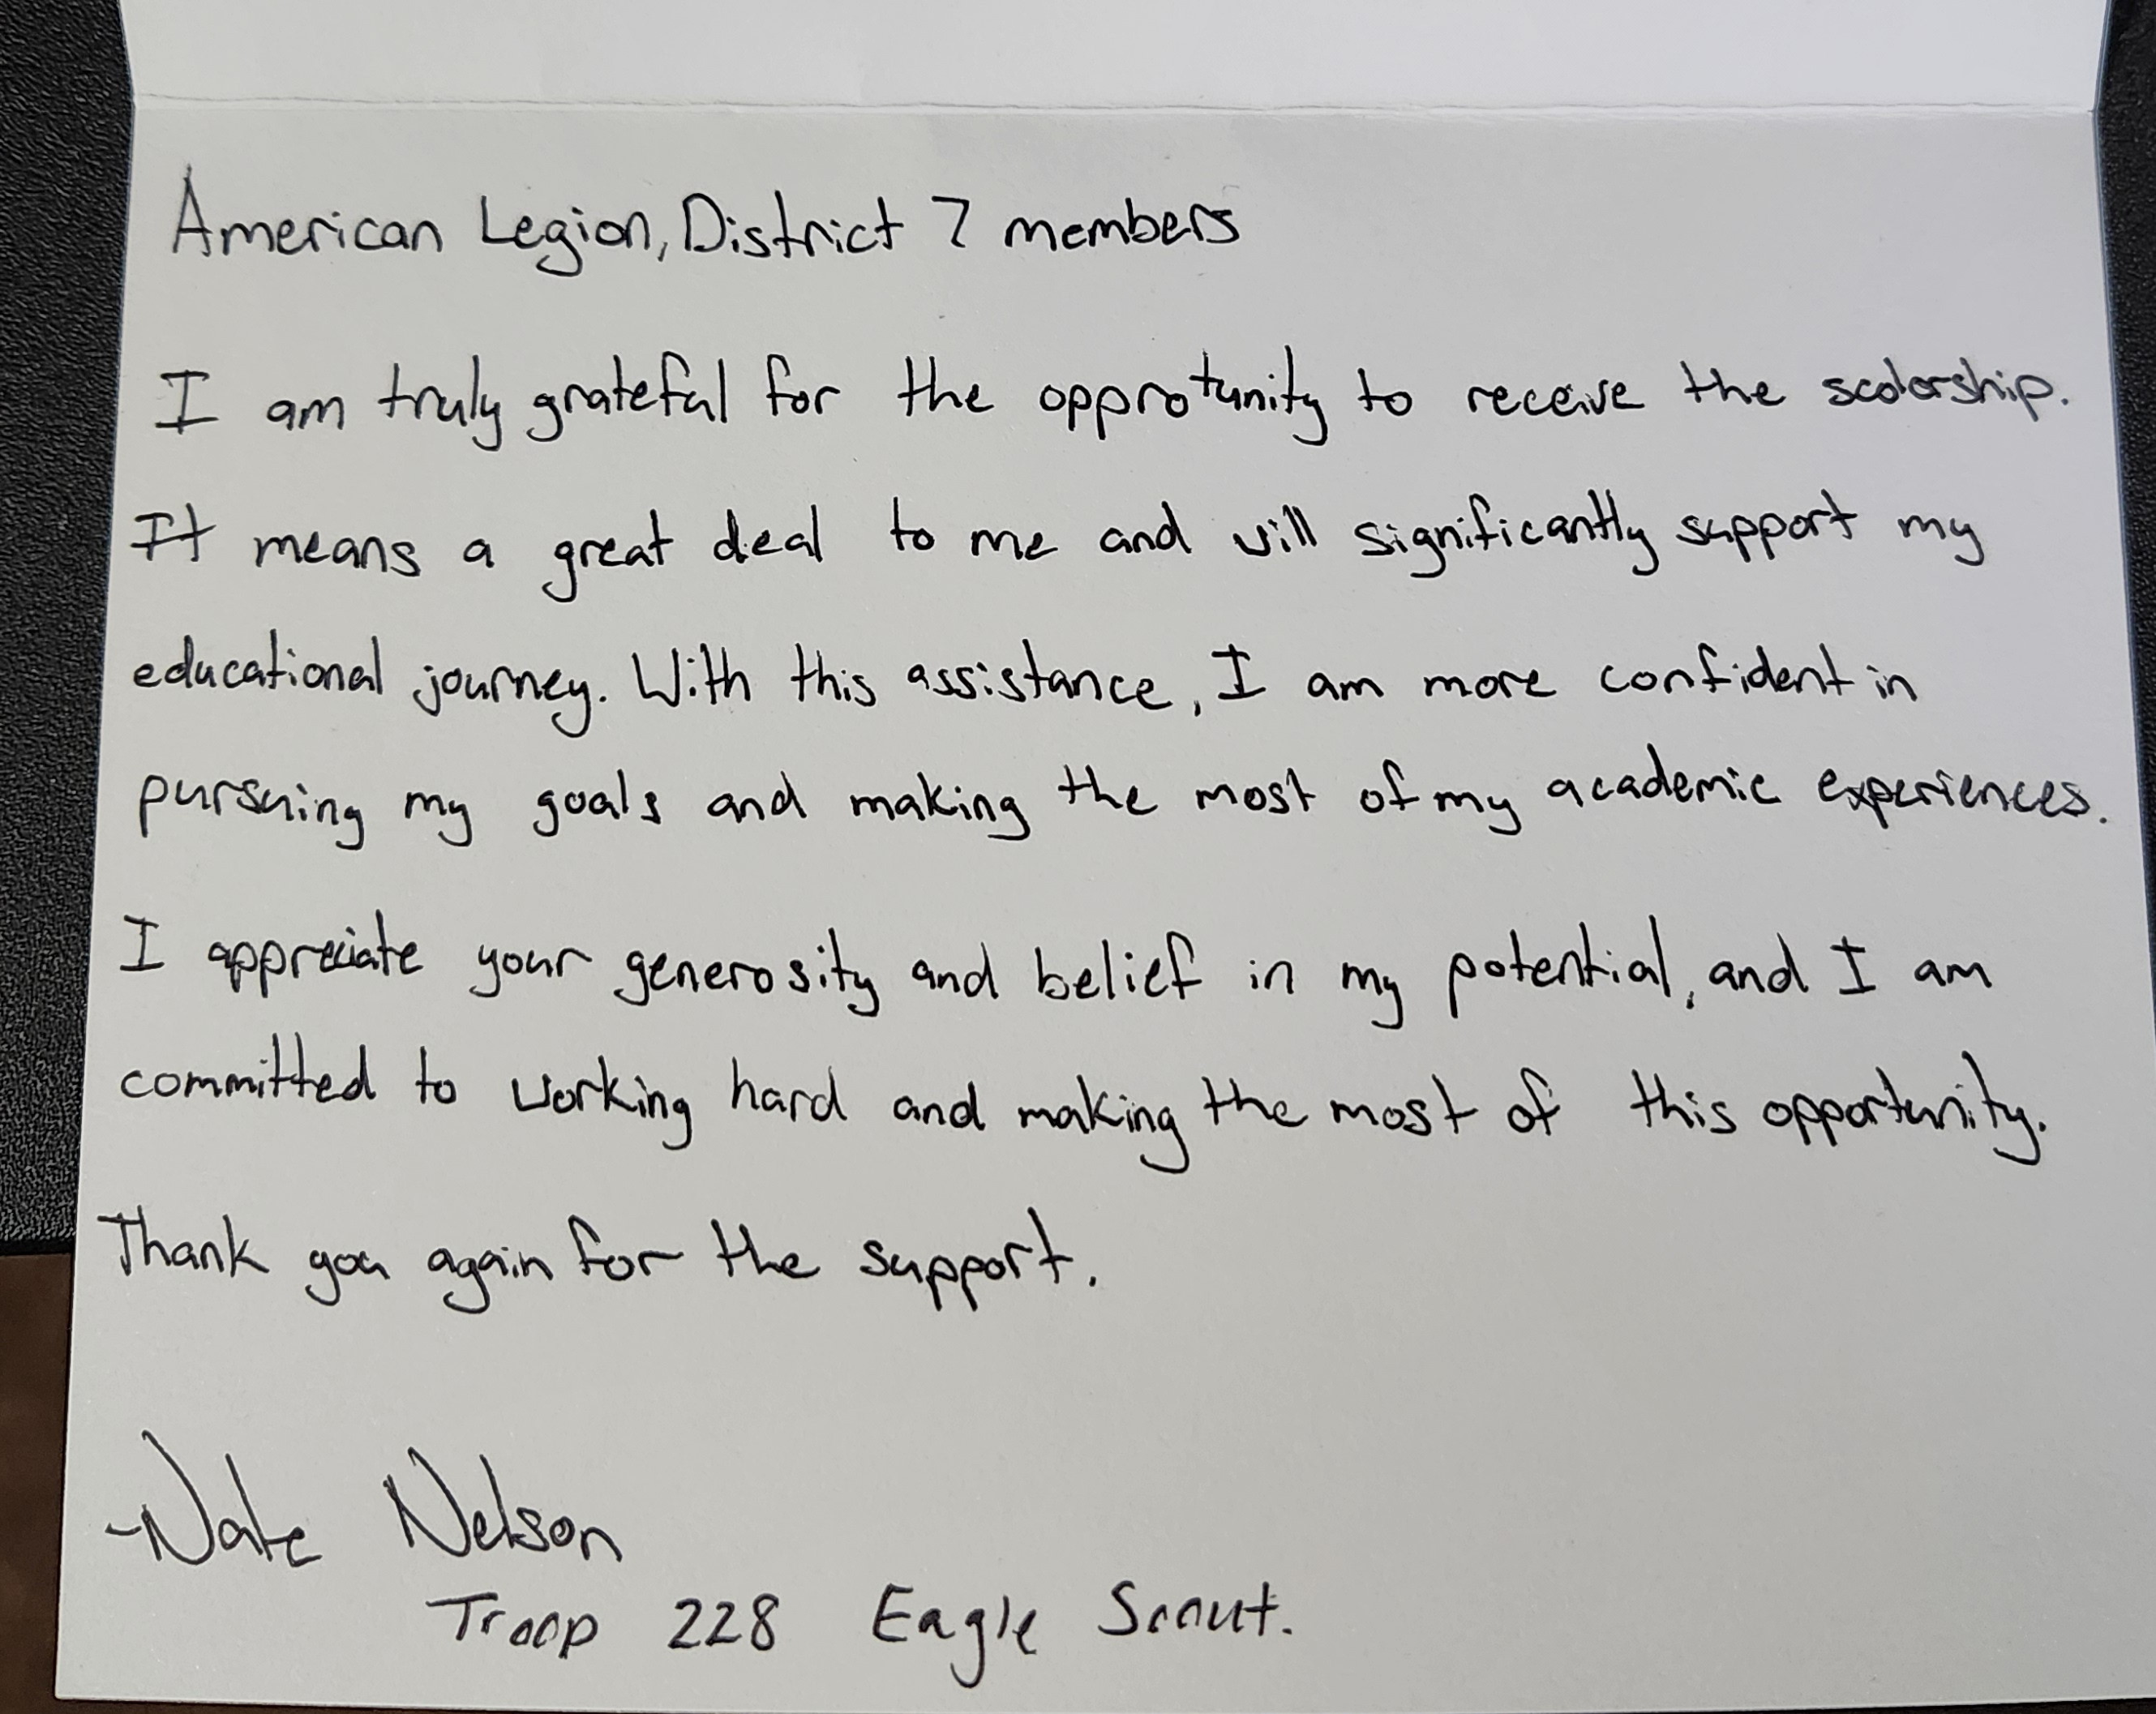 American Legion, District 7 members
I am truly grateful for the opprotunity to receive the scolorship.
It means a great deal to me and will significantly support my
educational journey. With this assistance, I am more confident in
pursuing my goals and making the most of my academic experiences.
I appreciate your generosity and belief in my potential, and I am
committed to working hard and making the most of this opportunity.
Thank you again for the support.
-Nate Nelson
Troop 228 Eagle Scout.